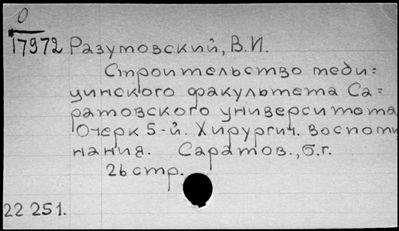 0
17972 Разумовский, В.И.
Строительство меди=
цинского факультета Са=
ратовского университета
Очерк 5-й. Хирургич. воспоми
нания. Саратов., б.г.
26 стр.
22 251.